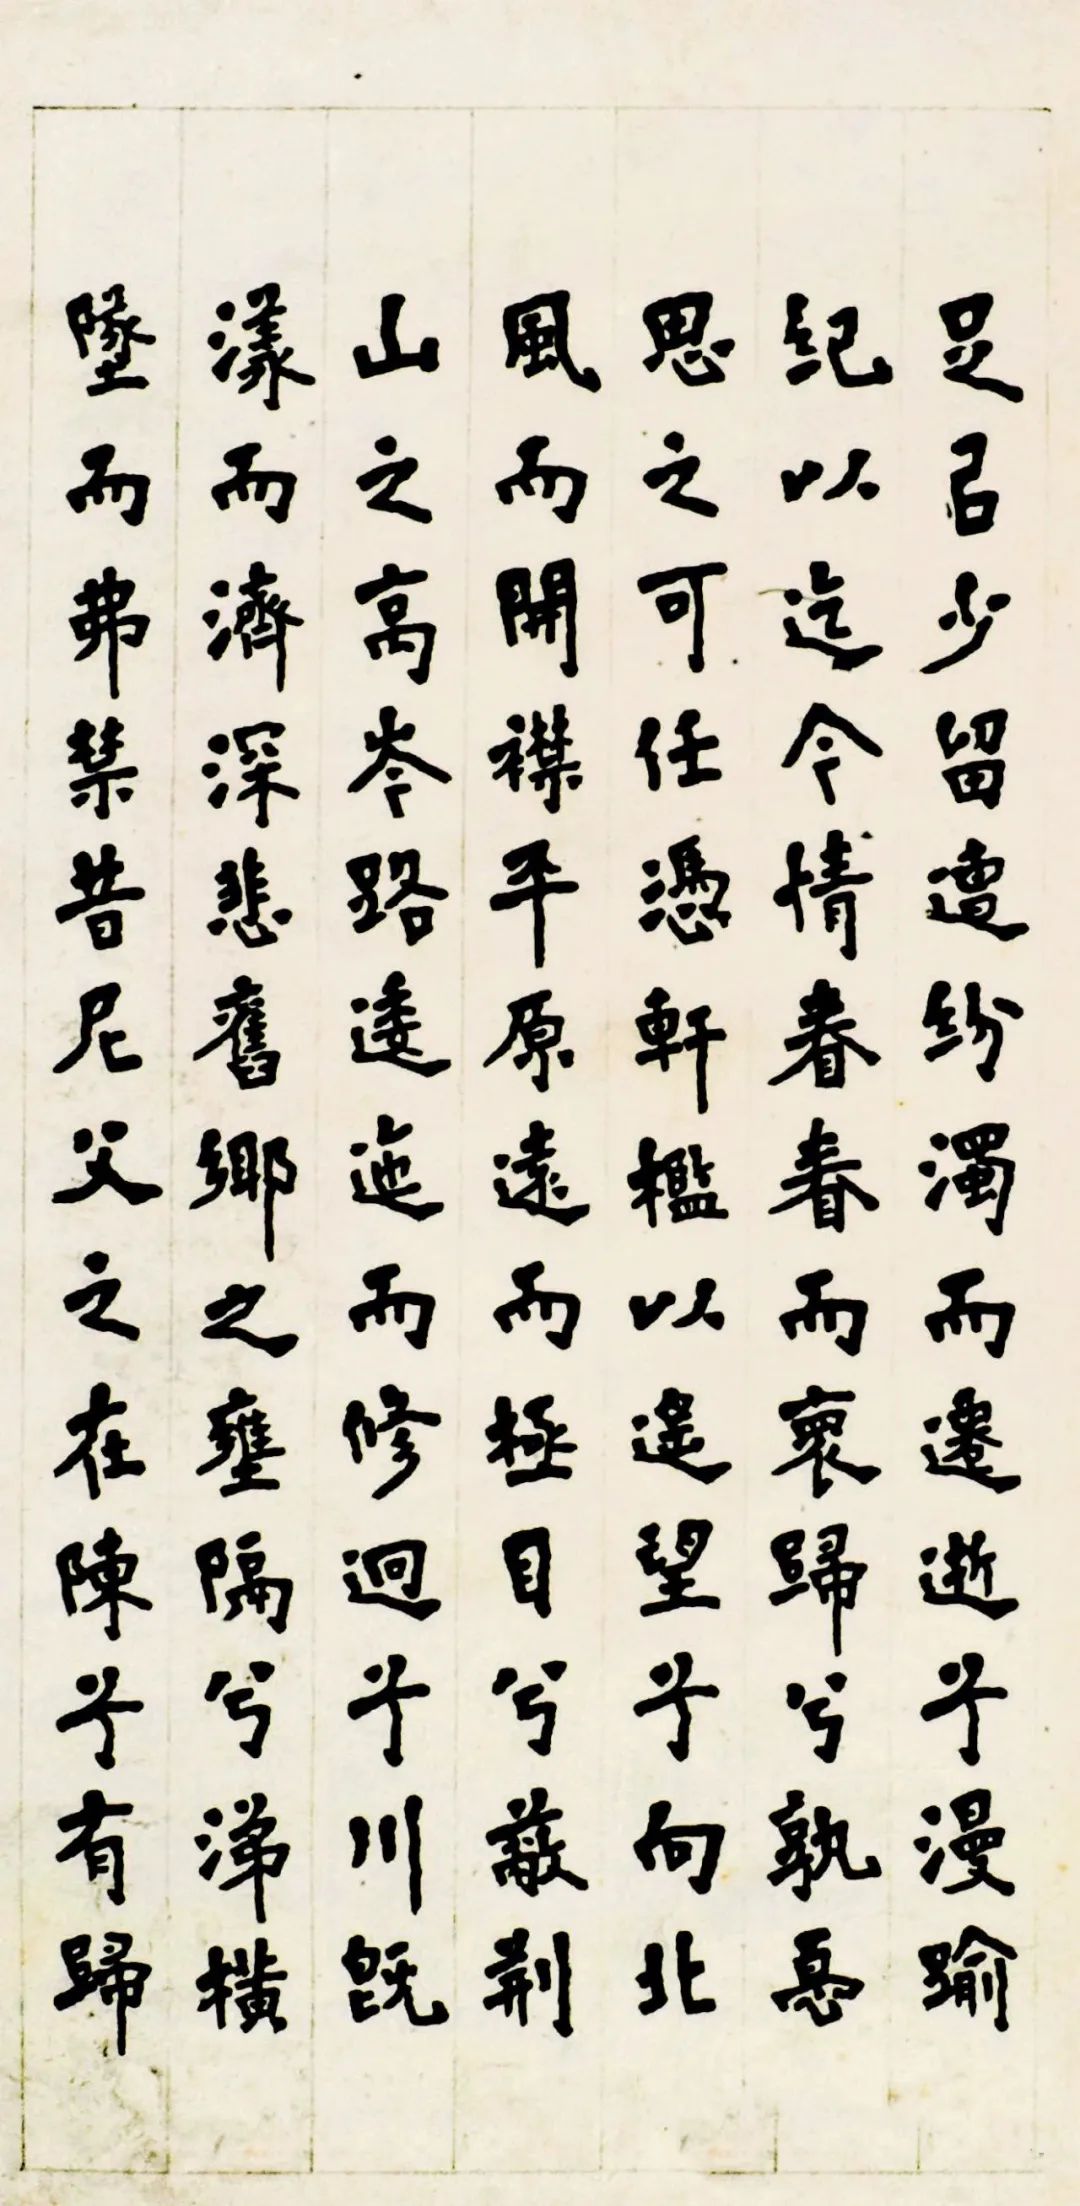 足㠯少留遭紛濁而遷逝兮漫踰
紀以迄今情眷眷而褱歸兮孰𢝊
思之可任憑軒檻以遙望兮向北
風而開襟平原遠而極目兮蔽荊
山之高岑路逶迤而修迥兮川既
漾而濟深悲舊鄉之壅隔兮涕橫
墜而弗禁昔尼父之在陳兮有歸